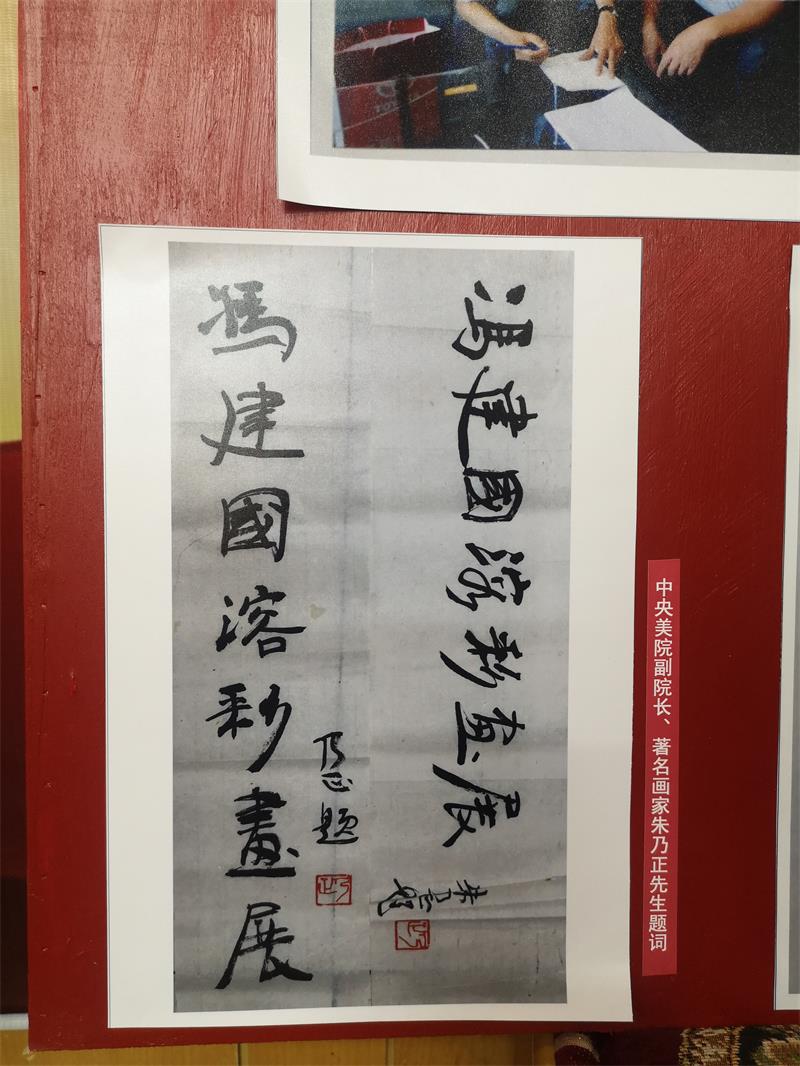 冯建國溶彩画展
朱乃正题
馮建國溶彩畫展
乃正题
中央美院副院长、著名画家朱乃正先生题词